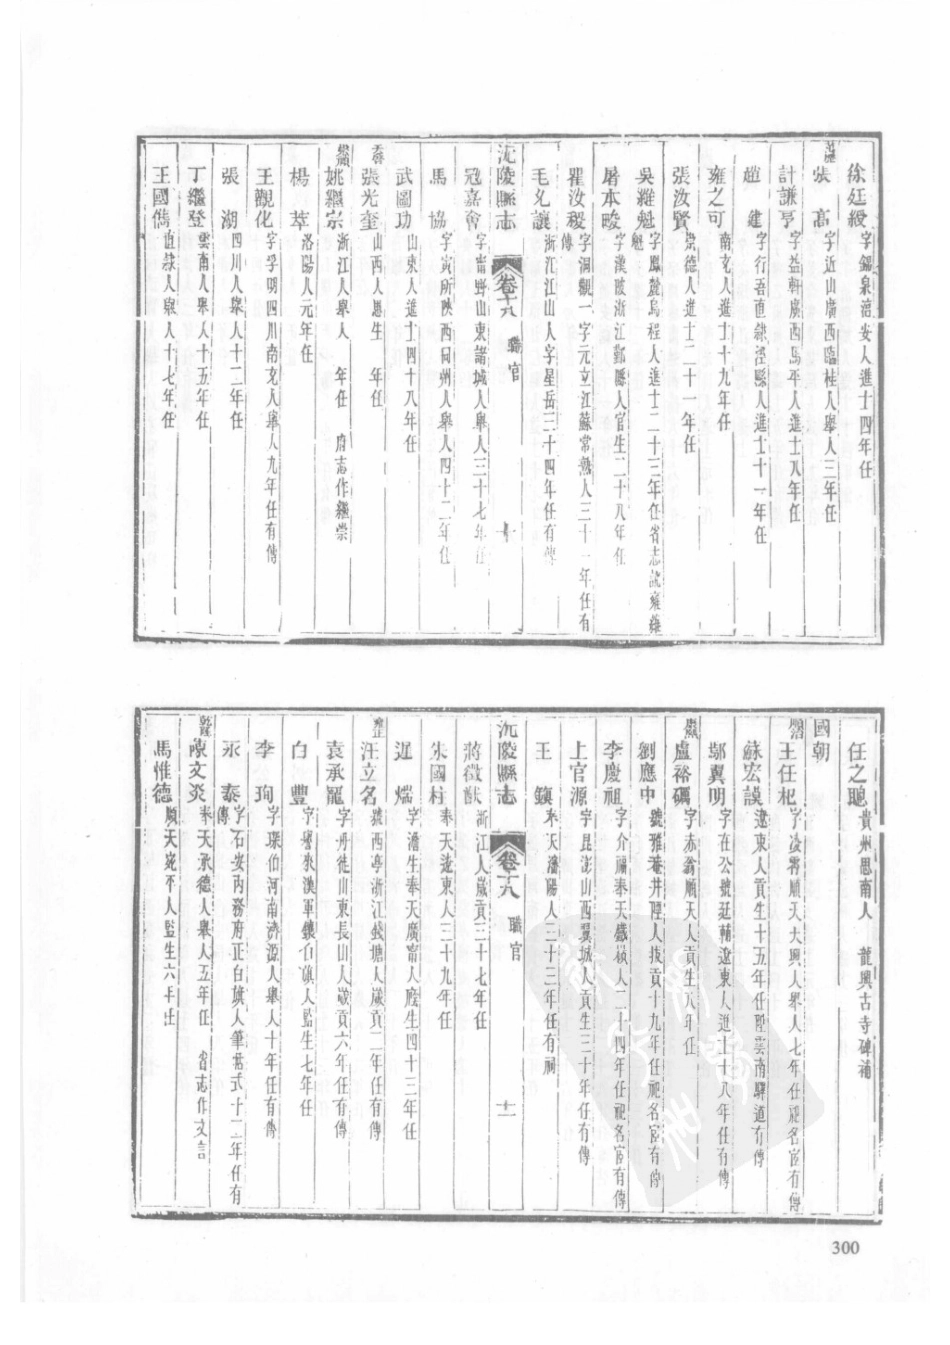 徐廷綬 字錫泉淮安人進士四年任
萬曆
張 高 字近山廣西臨桂人舉人三年任
計謙亨 字益軒廣西馬平人進士八年任
趙 建 字行吾直隸涇縣人進士十一年任
雍之可 南充人進士十九年任
張汝賢 常德人進士二十一年任
吳維魁 字鳳麓烏程人進士二十三年任省志訛雍維魁
屠本畯 字漢陂浙江鄞縣人官生二十八年任
瞿汝稷 字洞觀一字元立江蘇常熟人三十一年任有傳
毛乂讓 浙江江山人字星岳三十四年任有傳
沅陵縣志 卷十八 職官 十
冦嘉會 字甯野山東諸城人舉人三十七年任
馬 協 字寅所陝西同州人舉人四十二年任
武圖功 山東人進士四十八年任
天啟
張光奎 山西人恩生 年任
崇禎
姚繼宗 浙江人舉人 年任 府志作繼崇
楊 萃 洛陽人元年任
王觀化 字孚明四川南充人舉人九年任有傳
張 湖 四川人舉人十二年任
丁繼登 雲南人舉人十五年任
王國儁 直隸人舉人十七年任
任之聰 貴州思南人 龍興古寺碑補
國朝
順治
王任杞 字凌霄順天大興人舉人七年任祀名宦有傳
蘇宏謨 遼東人貢生十五年任陞雲南驛道有傳
鄔翼明 字在公號廷輔遼東人進士十八年任有傳
康熙
盧裕礪 字赤翁順天人貢生元年任
劉應中 號雅菴井陘人拔貢十九年任祀名宦有傳
李慶祖 字介繭奉天鐵嶺人二十四年任祀名宦有傳
上官源 字昆澎山西翼城人貢生三十年任有傳
王 鎮 奉天瀋陽人三十三年任有祠
沅陵縣志 卷十八 職官 十一
蔣徵猷 浙江人歲貢三十七年任
朱國柱 奉天遼東人三十九年任
遲 煓 字澹生奉天廣甯人廕生四十三年任
雍正
汪立名 號西亭浙江錢塘人歲貢二年任有傳
袁承寵 字丹徒山東長山人歲貢六年任有傳
白 豐 字魯來漢軍鑲白旗人監生七年任
李 珣 字璞伯河南濟源人舉人十年任有傳
永 泰 字石安內務府正白旗人筆帖式十二年任有傳
乾隆
陳文炎 奉天承德人舉人五年任 省志作文言
馬惟德 順天宛平人監生六年任
300